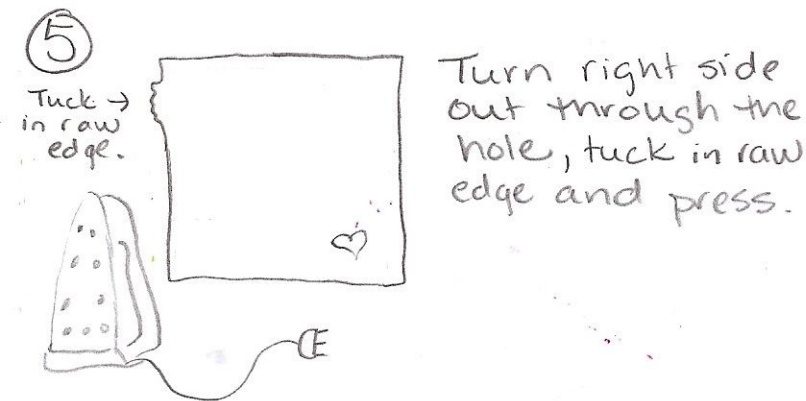 5
Tuck →
in raw
edge.
Turn right side
out through the
hole, tuck in raw
edge and press.